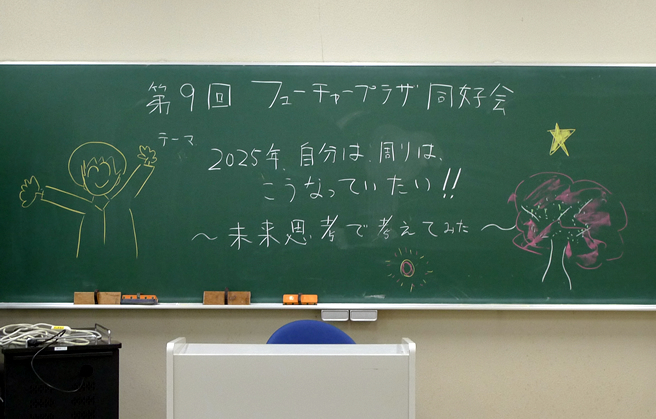 第9回 フューチャープラザ同好会
テーマ
2025年、自分は、周りは、
こうなっていたい!!
～未来思考で考えてみた～